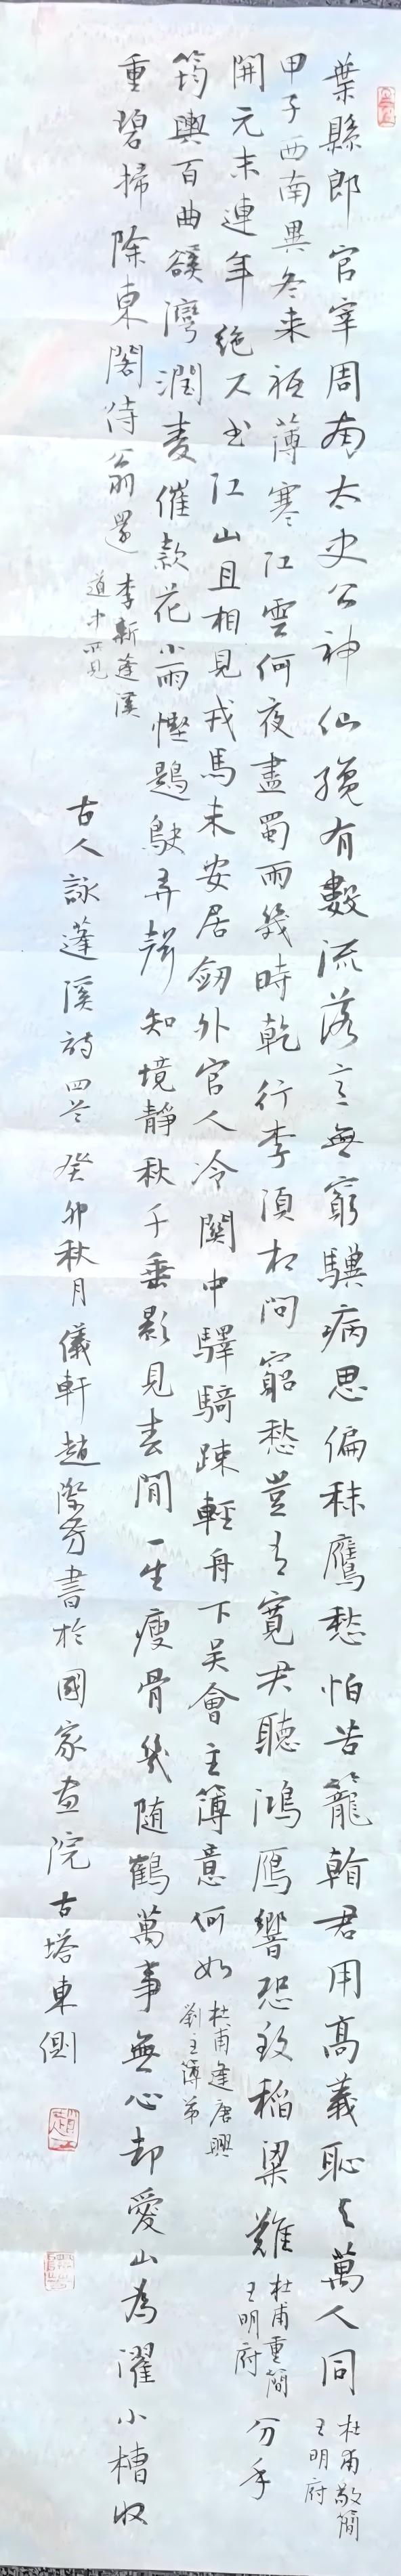 葉縣郎官宰周南太史公神仙才有數流落意無窮驥病思偏秣鷹愁怕苦籠看君用高義恥與萬人同 杜甫敬簡王明府
甲子西南異冬來秪薄寒江雲何夜盡蜀雨幾時乾行李須相問窮愁豈有寬君聽鴻雁響恐致稻粱難 杜甫重簡王明府 分手
開元末連年絕尺書江山且相見戎馬未安居劒外官人冷關中驛騎疎輕舟下吳會主簿意何如 杜甫逢唐興劉主簿弟
筍輿百曲緣灣澗麦催款花小雨慳鶗鴃弄聲知境靜秋千垂影見春閒一生瘦骨幾随鶴萬事無心却愛山為濯小槽收
重碧掃除東閣待翁還 李新蓬溪道中所見
古人詠蓬溪詩四首 癸卯秋月儀軒趙際芳書於國家画院古塔東側